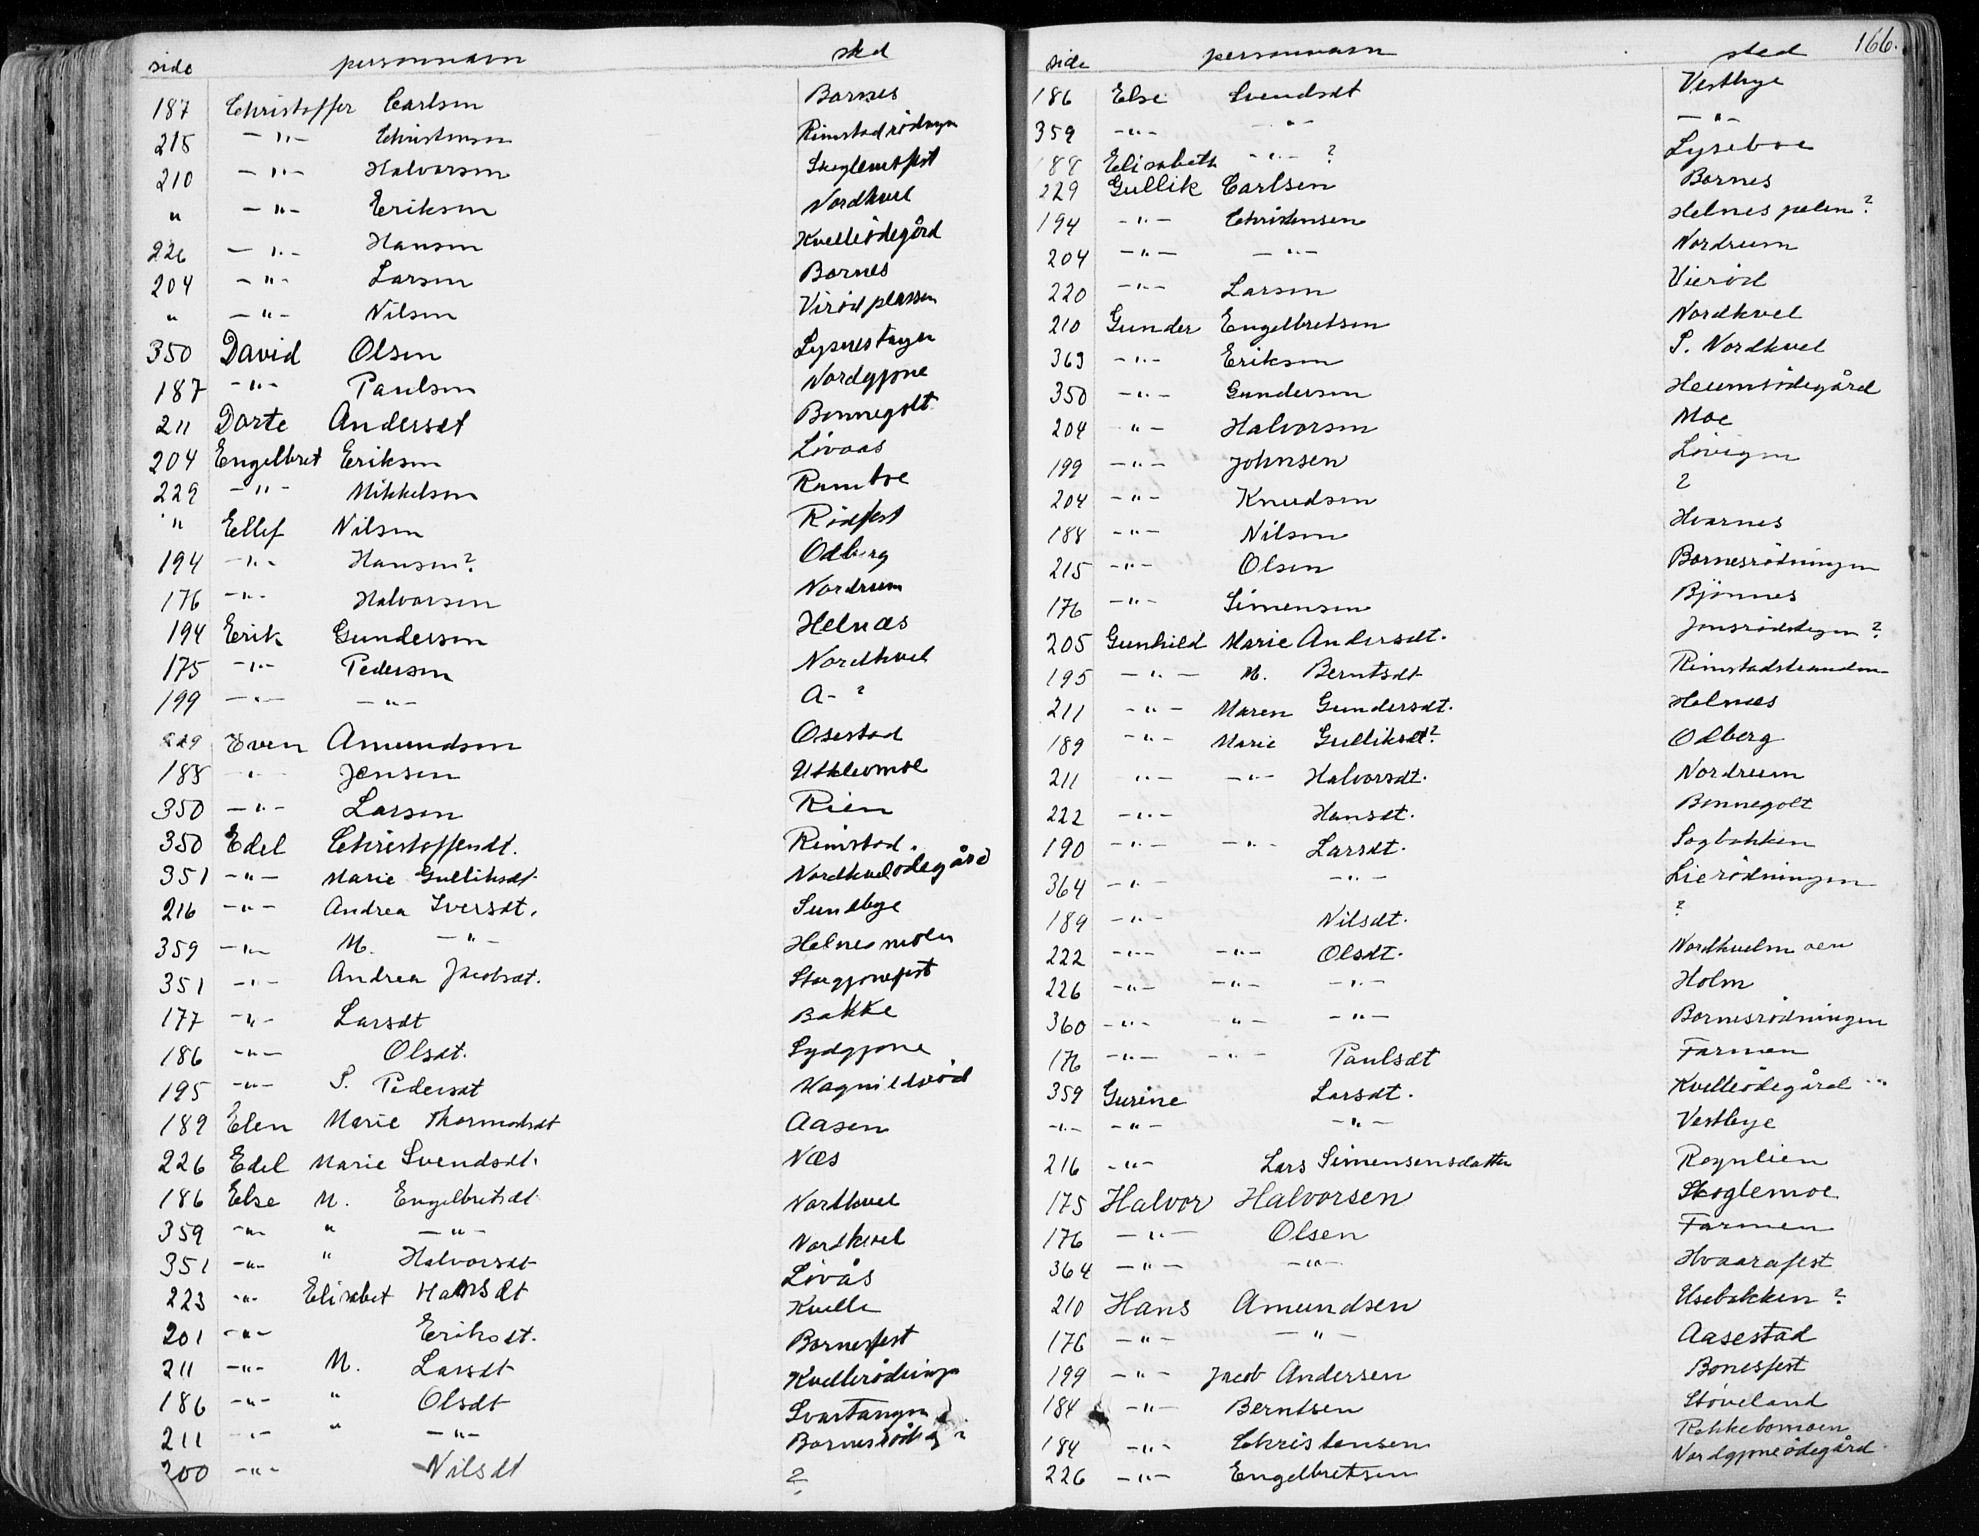 side personnavn sted
187 Christoffer Carlsen Barnes
215 -"- Christensen Rimstadrødnyn
210 -"- Halvorsen Skoglemofest
" -"- Eriksen Nordkvel
226 -"- Hansen Kvelleødegård
204 -"- Larsen Barnes
" -"- Nilsen Virød plassen
350 David Olsen Lysnestagen
187 -"- Paulsen Nordgjone
211 Dorte Andersdt Bonnegolt
204 Engelbret Eriksen Livaas
229 -"- Mikkelsen Ramboe
" Ellef Nilsen Rødfest
194 -"- Hansen? Odberg
176 -"- Halvorsen Nordrum
194 Erik Gundersen Helnæs
175 -"- Pedersen Nordkvel
199 -"- -"- A- ?
229 Even Amundsen Osestad
188 -"- Jensen Utklevmoe
350 -"- Larsen Rien
350 Edel Christoffersdt. Rimstad.
351 -"- Marie Gulliksdt. Nordkvelødegård
216 -"- Andrea Iversdt. Sundbye
359 -"- M. -"- Helnesmoen
351 -"- Andrea Jacobsdt. Storgjonefest
177 -"- Larsdt Bakke
186 -"- Olsdt. Sydgjone
195 -"- S. Pedersdt Magnildsrød
189 Elen Marie Thormodsdt Aasen
226 Edel Marie Svendsdt. Næs
186 Else M. Engelbretsdt. Nordkvel
359 -"- " -"- Nordkvel
351 -"- " Halvorsdt Livås
223 -"- Elisabet Hansdt Kvelle
201 -"- Eriksdt. Barnesfest
211 -"- M. Larsdt Kvellerødninga
186 -"- " Olsdt Svartangen
211 -"- " -"- Barnesrødng ?
200 -"- Nilsdt ?
side personnavn sted 166.
186 Else Svendsdt Vestbye
359 -"- -"- -"-
189 Elisabeth -"- ? Lyseboe
229 Gullik Carlsen Barnes
194 -"- Christensen Helnes palen?
204 -"- -"- Nordrum
220 -"- Larsen Vierød
210 Gunder Engelbretsen Nordkvel
363 -"- Eriksen S. Nordkvel
350 -"- Gundersen Heumsødegård
204 -"- Halvorsen Moe
199 -"- Johnsen Løvigen
204 -"- Knudsen ?
188 -"- Nilsen Hvarnes
215 -"- Olsen Barnesrødningen
176 -"- Simensen Bjønnes
205 Gunhild Marie Andersdt. Jonsrødstegen?
195 -"- M. Berntsdt Rimstadstranden
211 -"- Maren Gundersdt. Helnæs
189 -"- Marie Gulliksdt? Odberg
211 -"- -"- Halvorsdt. Nordrum
222 -"- Hansdt. Bonnegolt
190 -"- -"- Larsdt. Sagbakken
364 -"- -"- Lierødningen
189 -"- Nilsdt. ?
222 -"- -"- Olsdt. Nordkvelmoen
226 -"- -"- -"- Holm
360 -"- -"- -"- Barnesrødningen
176 -"- -"- Paulsdt Farmen
359 Gurine Larsdt. Kvelleødegård
-"- -"- -"- Vestbye
216 -"- Lars Simensensdatter Rognlien
175 Halvor Halvorsen Skoglemoe
176 -"- Olsen Farmen
364 -"- -"- Hvaarafest
210 Hans Amundsen Usebakken?
176 -"- -"- Aasestad
199 -"- Jacob Andersen Bonesfest
184 -"- Berntsen Støveland
184 -"- Christensen Rokkebomoen
226 -"- Engelbretsen Nordgjoneødegård